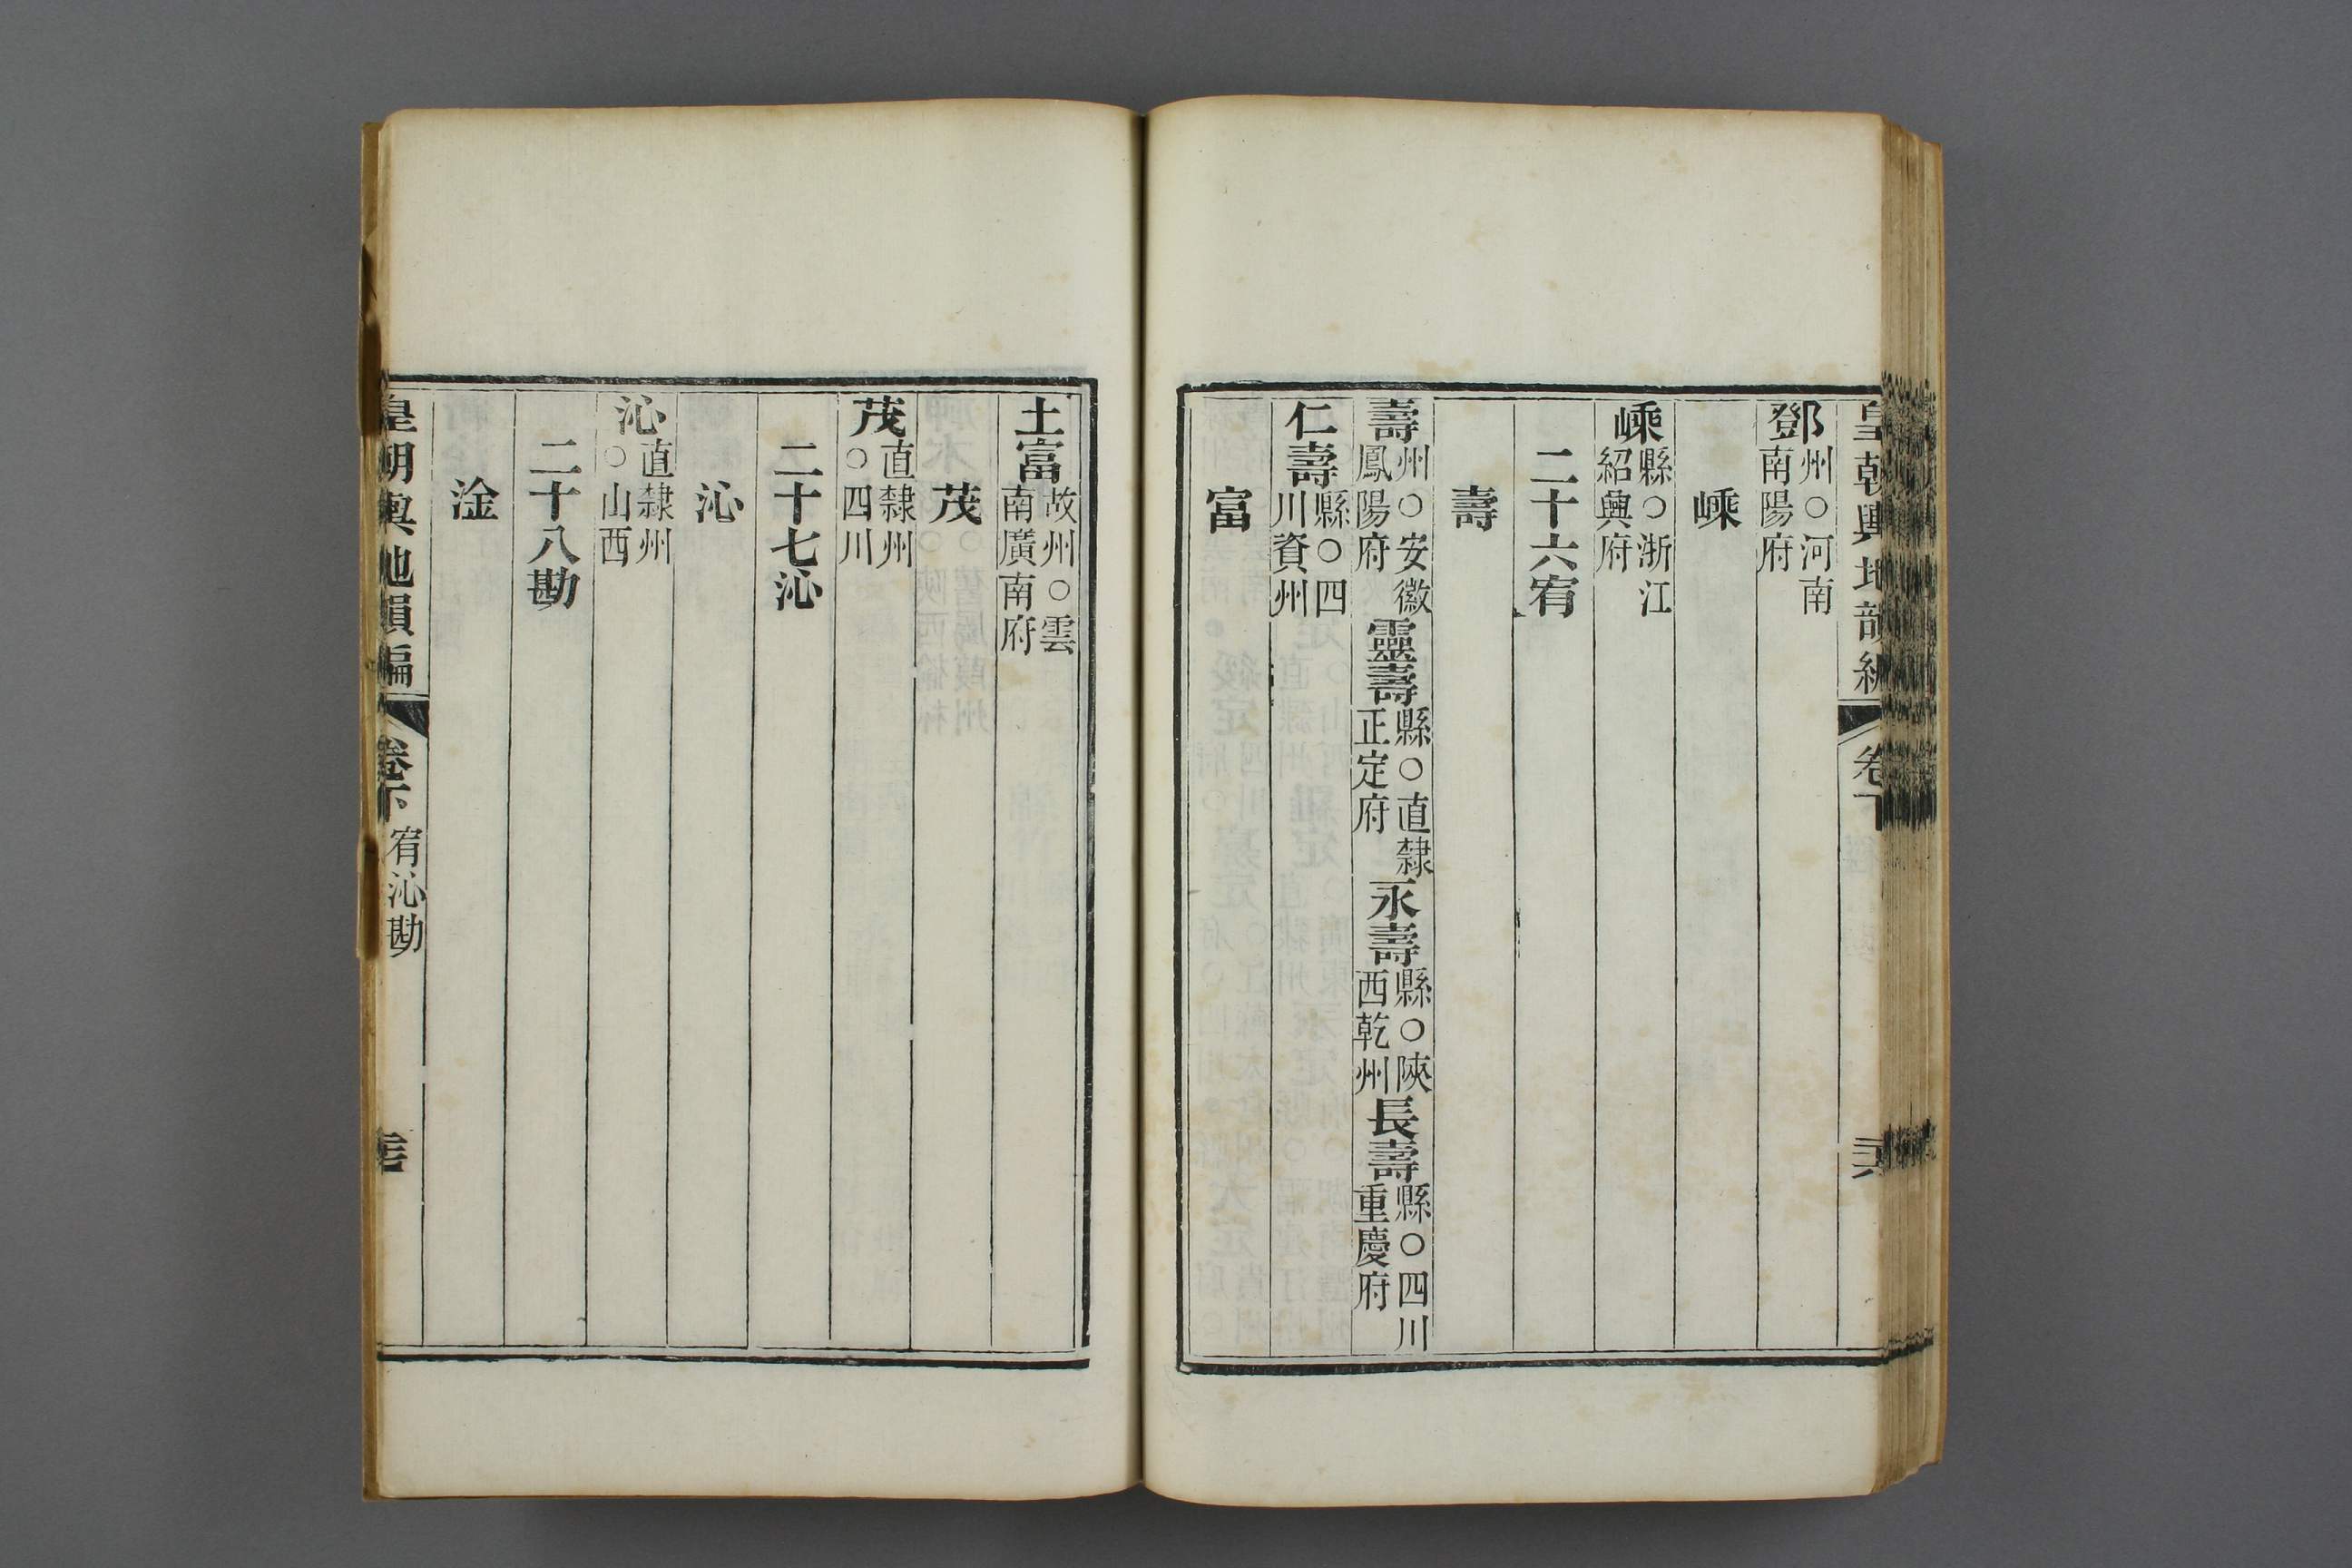 皇朝輿地韻編 卷下 三六
鄧州○河南南陽府
嵊
嵊縣○浙江紹興府
二十六宥
壽
壽州○安徽鳳陽府 靈壽縣○直隸正定府 永壽縣○陝西乾州 長壽縣○四川重慶府
仁壽縣○四川資州
富
土富故州○雲南廣南府
茂
茂直隸州○四川
二十七沁
沁
沁直隸州○山西
二十八勘
淦
皇朝輿地韻編 卷下 宥沁勘 三七